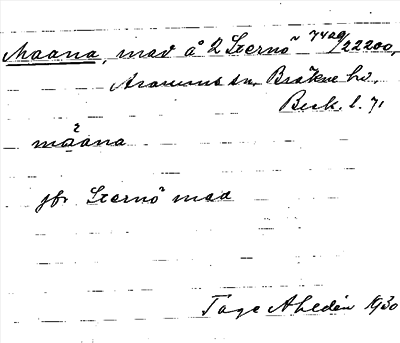 Maana, mad å 2 Sternö ~ 7429/22200,
Asarums sn. Bräkne hd.
Blek. l. 71
määna
jfr Sternö mad
Tage Ahldén 1930